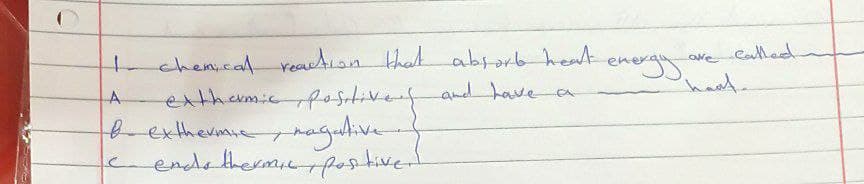 1- chemical reaction that absorb heat energy are called
A - exthermic, positive. and have a ___ heat.
B- exthermic, nagative.
C- endothermic, postive.